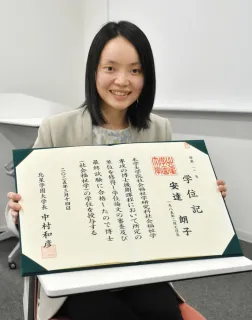 学位記
安達 朗子
本学大学院社会福祉学研究科社会福祉学
専攻の博士後期課程において所定の
単位を修得し学位論文の審査及び
最終試験に合格したので博士
(社会福祉学)の学位を授与する
二〇二五年三月十四日
北星学園大学長 中村和彦